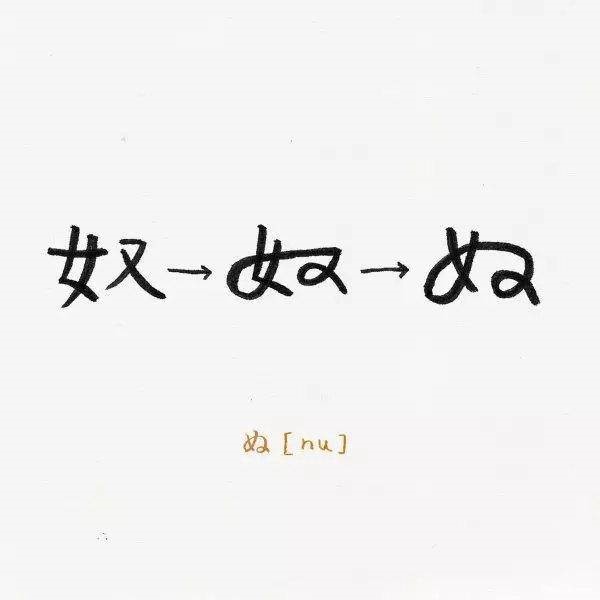 奴→ぬ→ぬ
ぬ[nu]